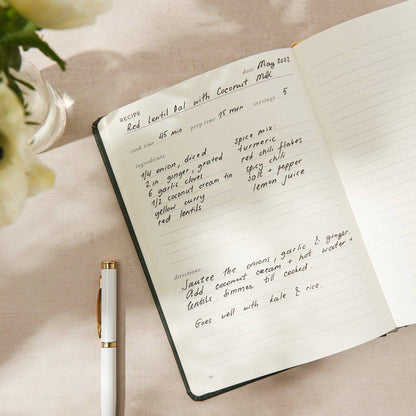 date May 2021
RECIPE Red Lentil Dal with Coconut Milk
cook time 45 min prep time 15 min servings 5
ingredients:
1/4 onion, diced
2 in ginger, grated
6 garlic cloves
1/2 coconut cream tin
yellow curry
red lentils
spice mix:
turmeric
red chili flakes
spicy chili
salt + pepper
lemon juice
directions:
Sautee the onions, garlic & ginger.
Add coconut cream + hot water +
lentils. Simmer till cooked.
Goes well with kale & rice.